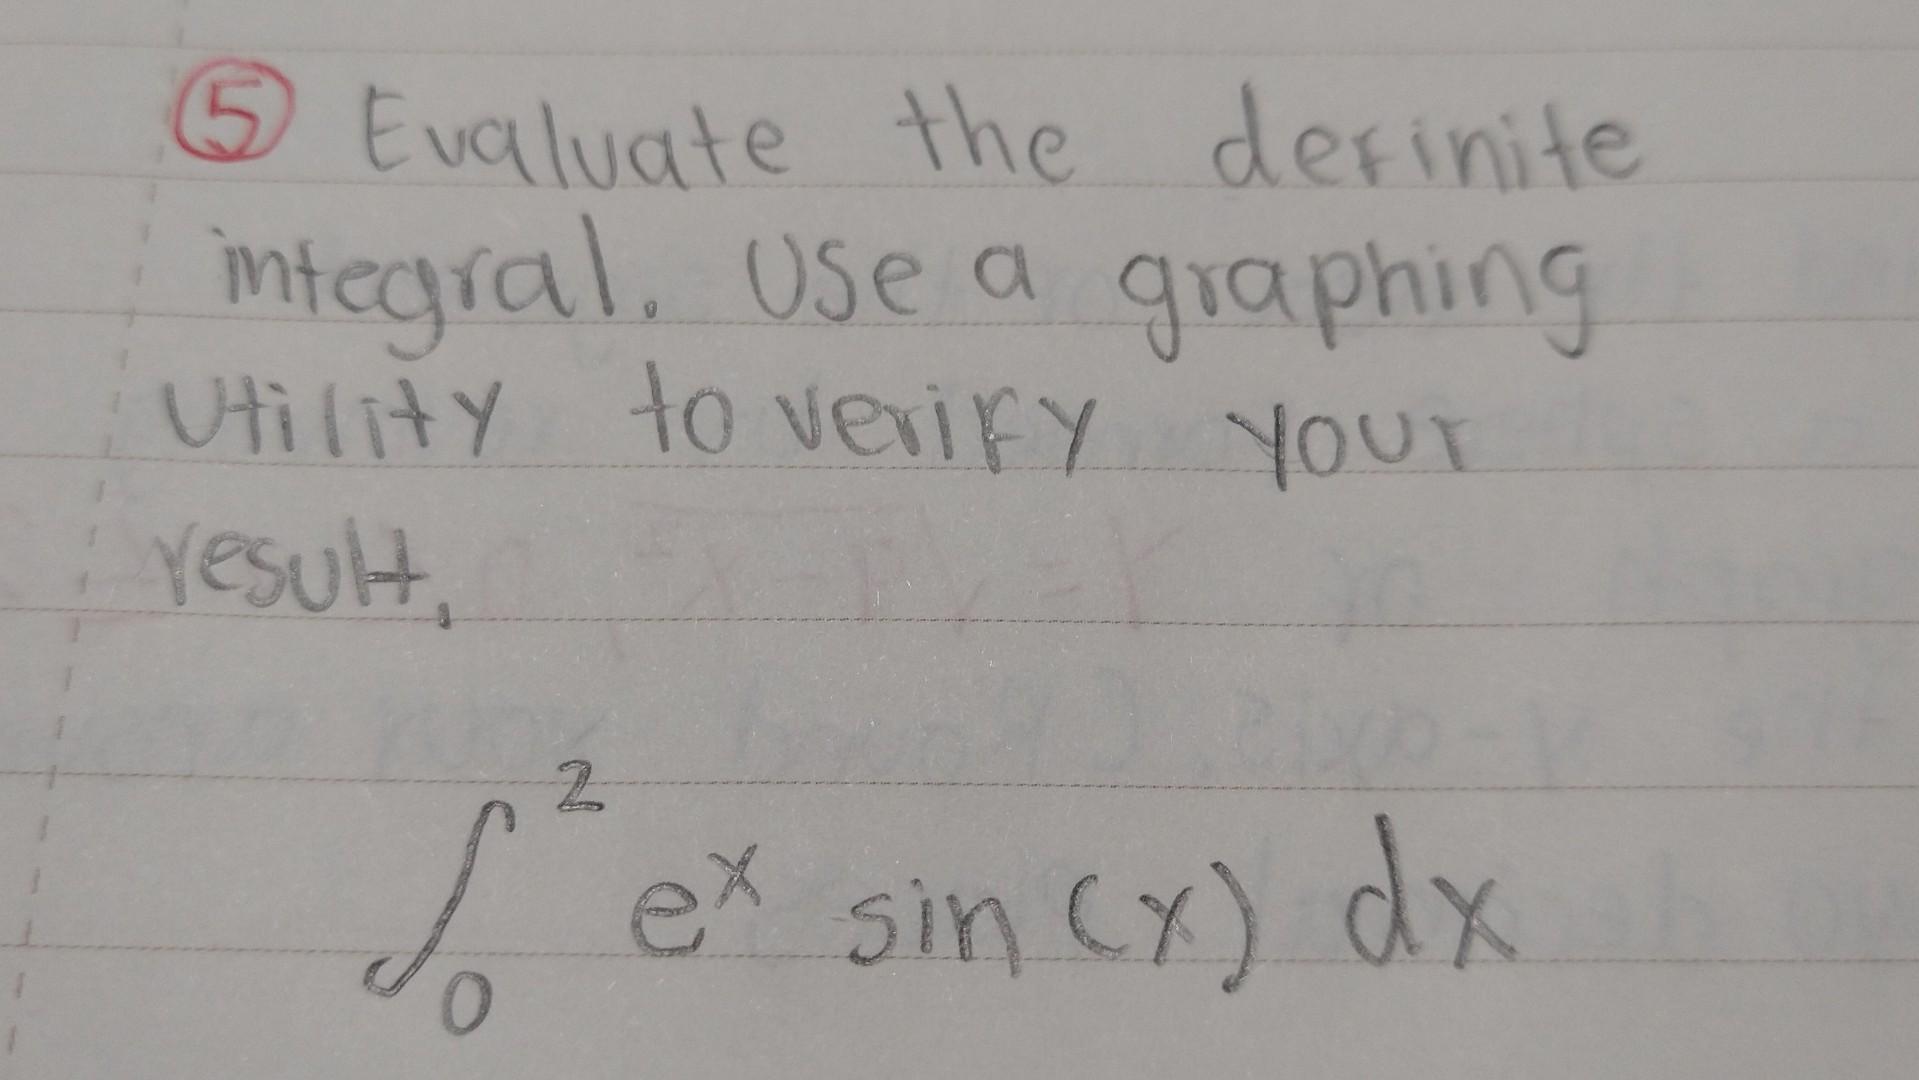 ⑤ Evaluate the definite
integral. Use a graphing
utility to verify your
result.
∫₀² eˣ sin(x) dx